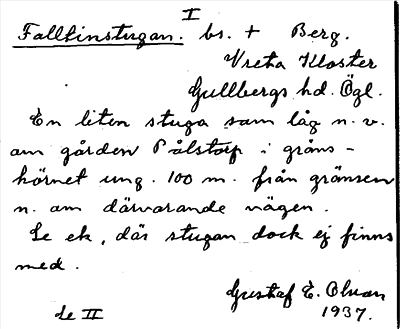 I
Falltinstugan. bs. + Berg.
Vreta Kloster
Gullbergs hd. Ögl.
En liten stuga sam låg n. v.
am gården Pålstorp i gräns-
hörnet ung. 100 m. från gränsen
n. am därvarande vägen.
Se ek, där stugan dock ej finns
med.
Gustaf E. Olsson
Se II 1937.